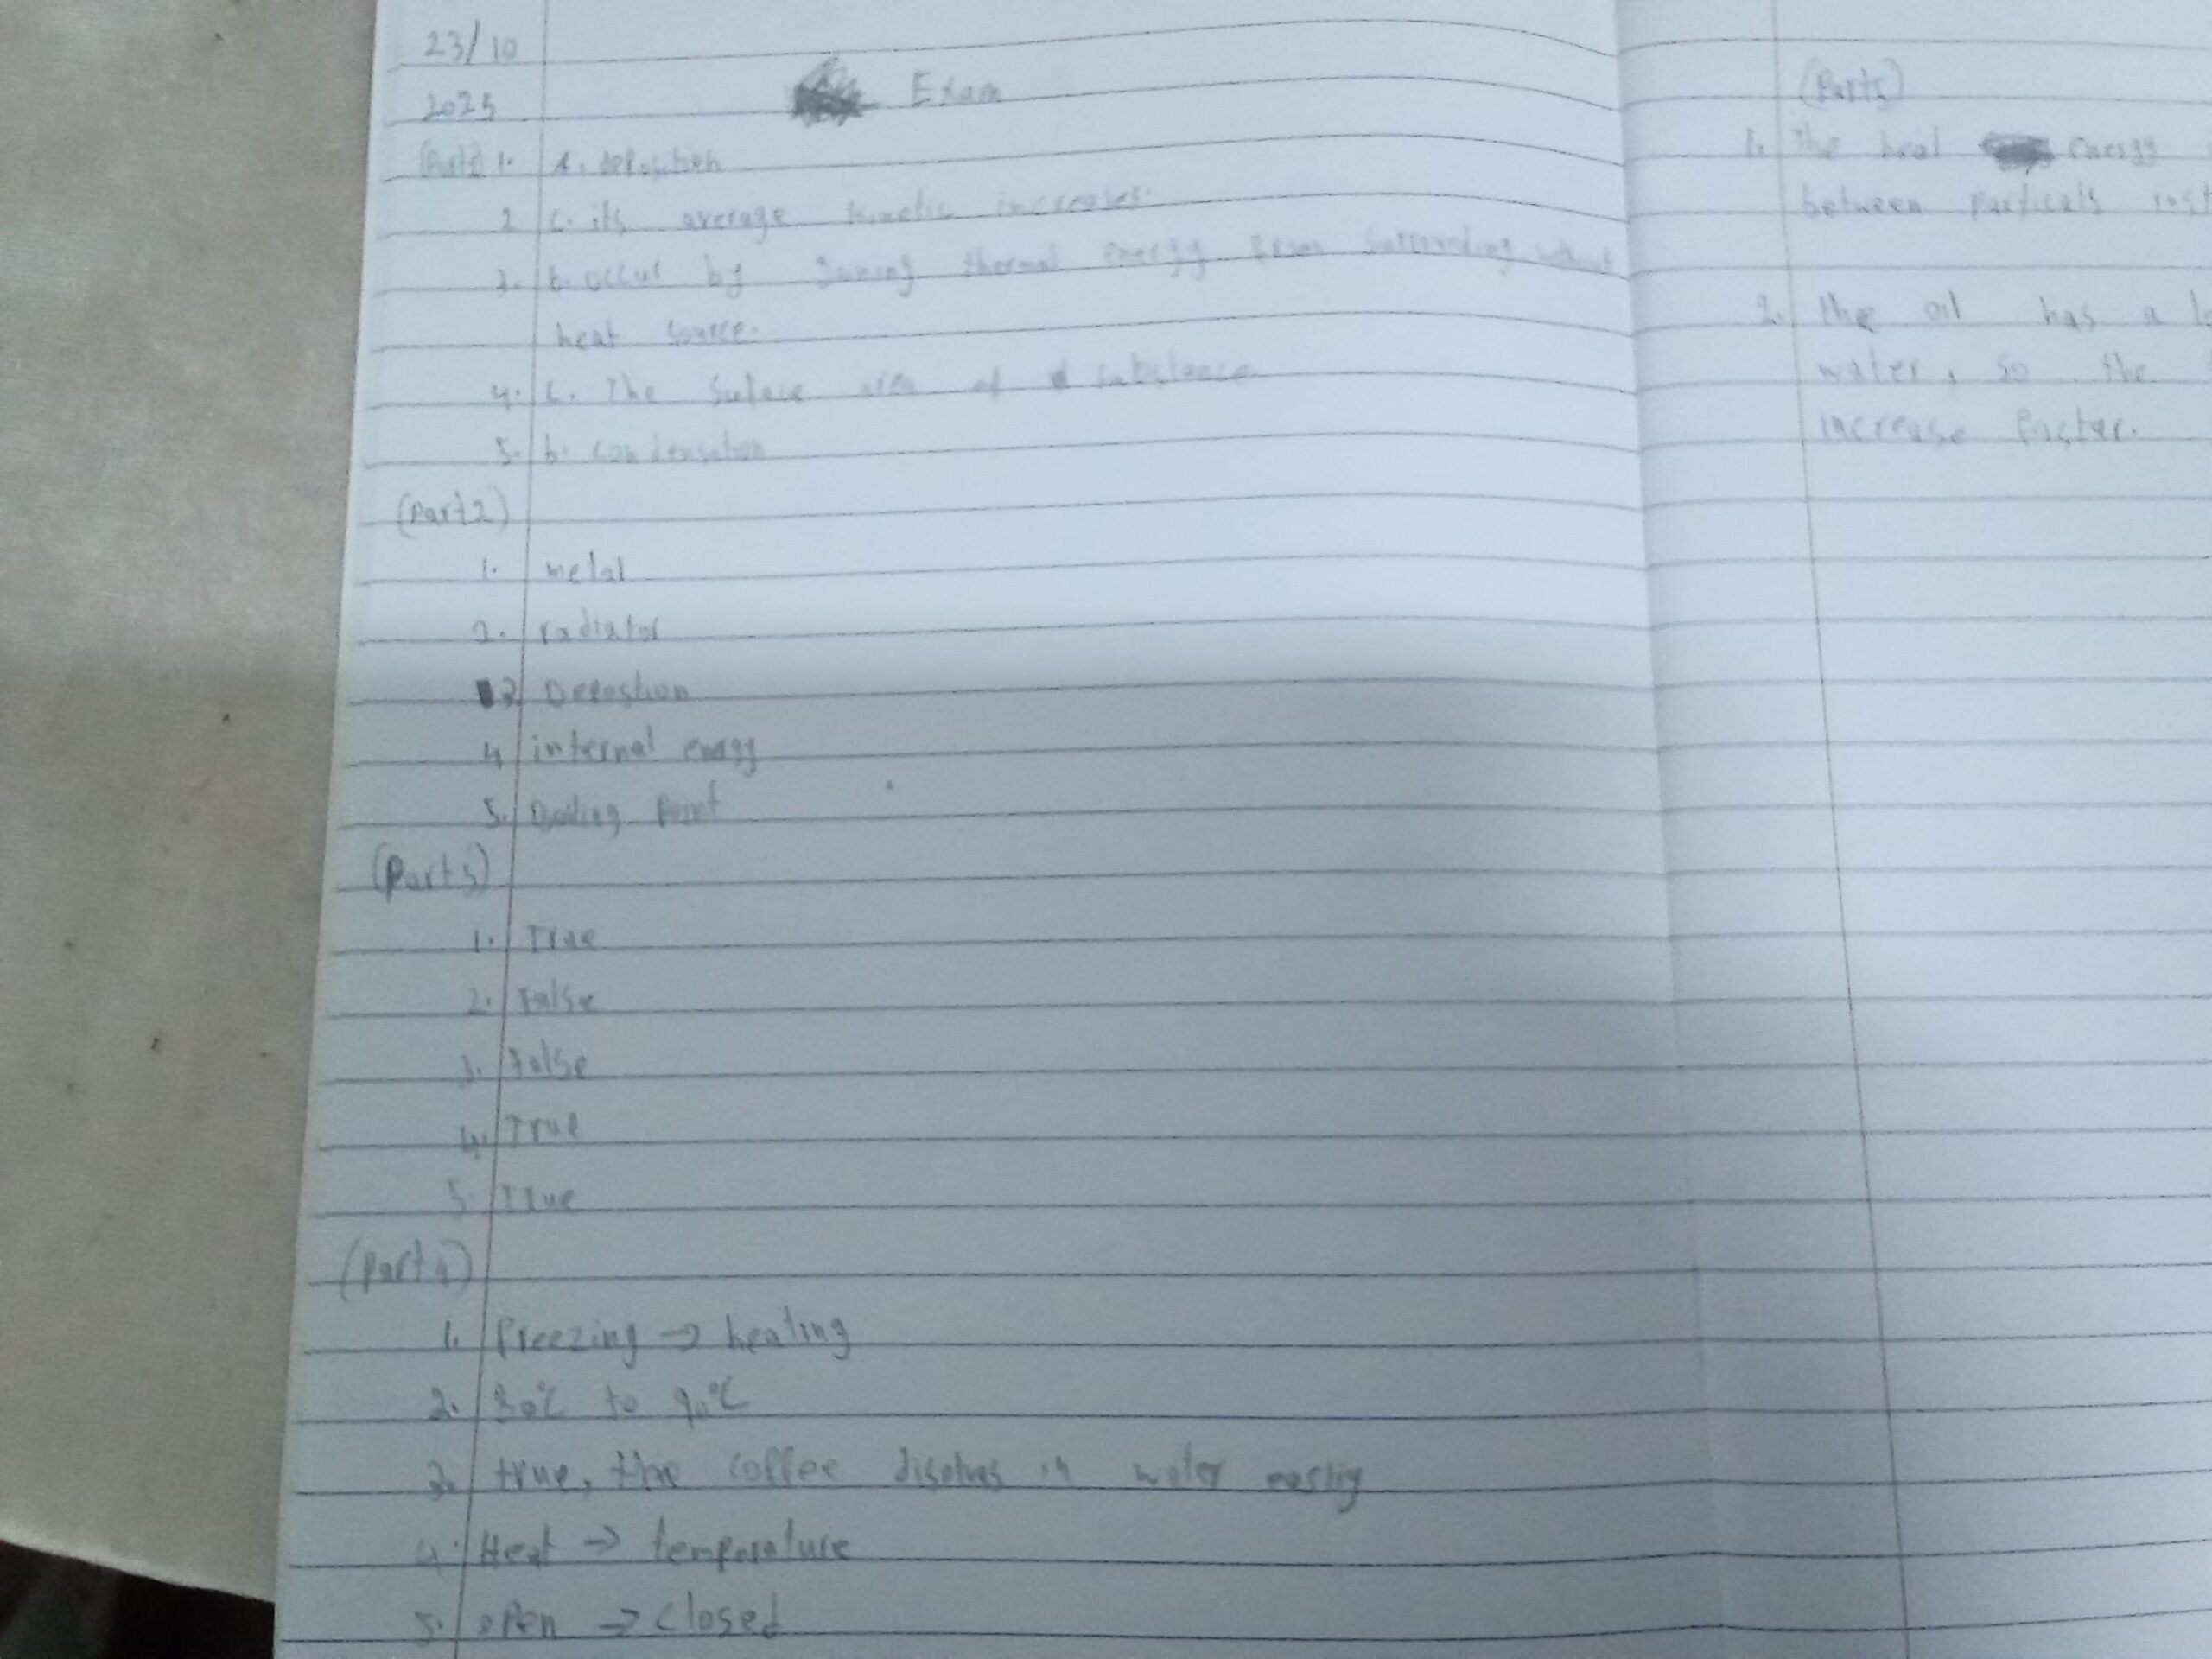 23/10
2025
Exam
(Part1) 1. d. deposition
2. c. its average kinetic increases.
3. b. occur by gaining thermal energy from surrounding without
heat source.
4. c. The surface area of substance
5. b. condensation
(Part2)
1. metal
2. radiator
3 Deposition
4 internal energy
5. Boiling Point
(Part3)
1. True
2. False
3. False
4. True
5. True
(Part4)
1. freezing → heating
2. 30°C to 90°C
3. true, the coffee disolves in water easliy
4. Heat → temperature
5. open → closed
(Part5)
1. The heal energy
between particals
2. the oil has a
water, so the
increase faster.